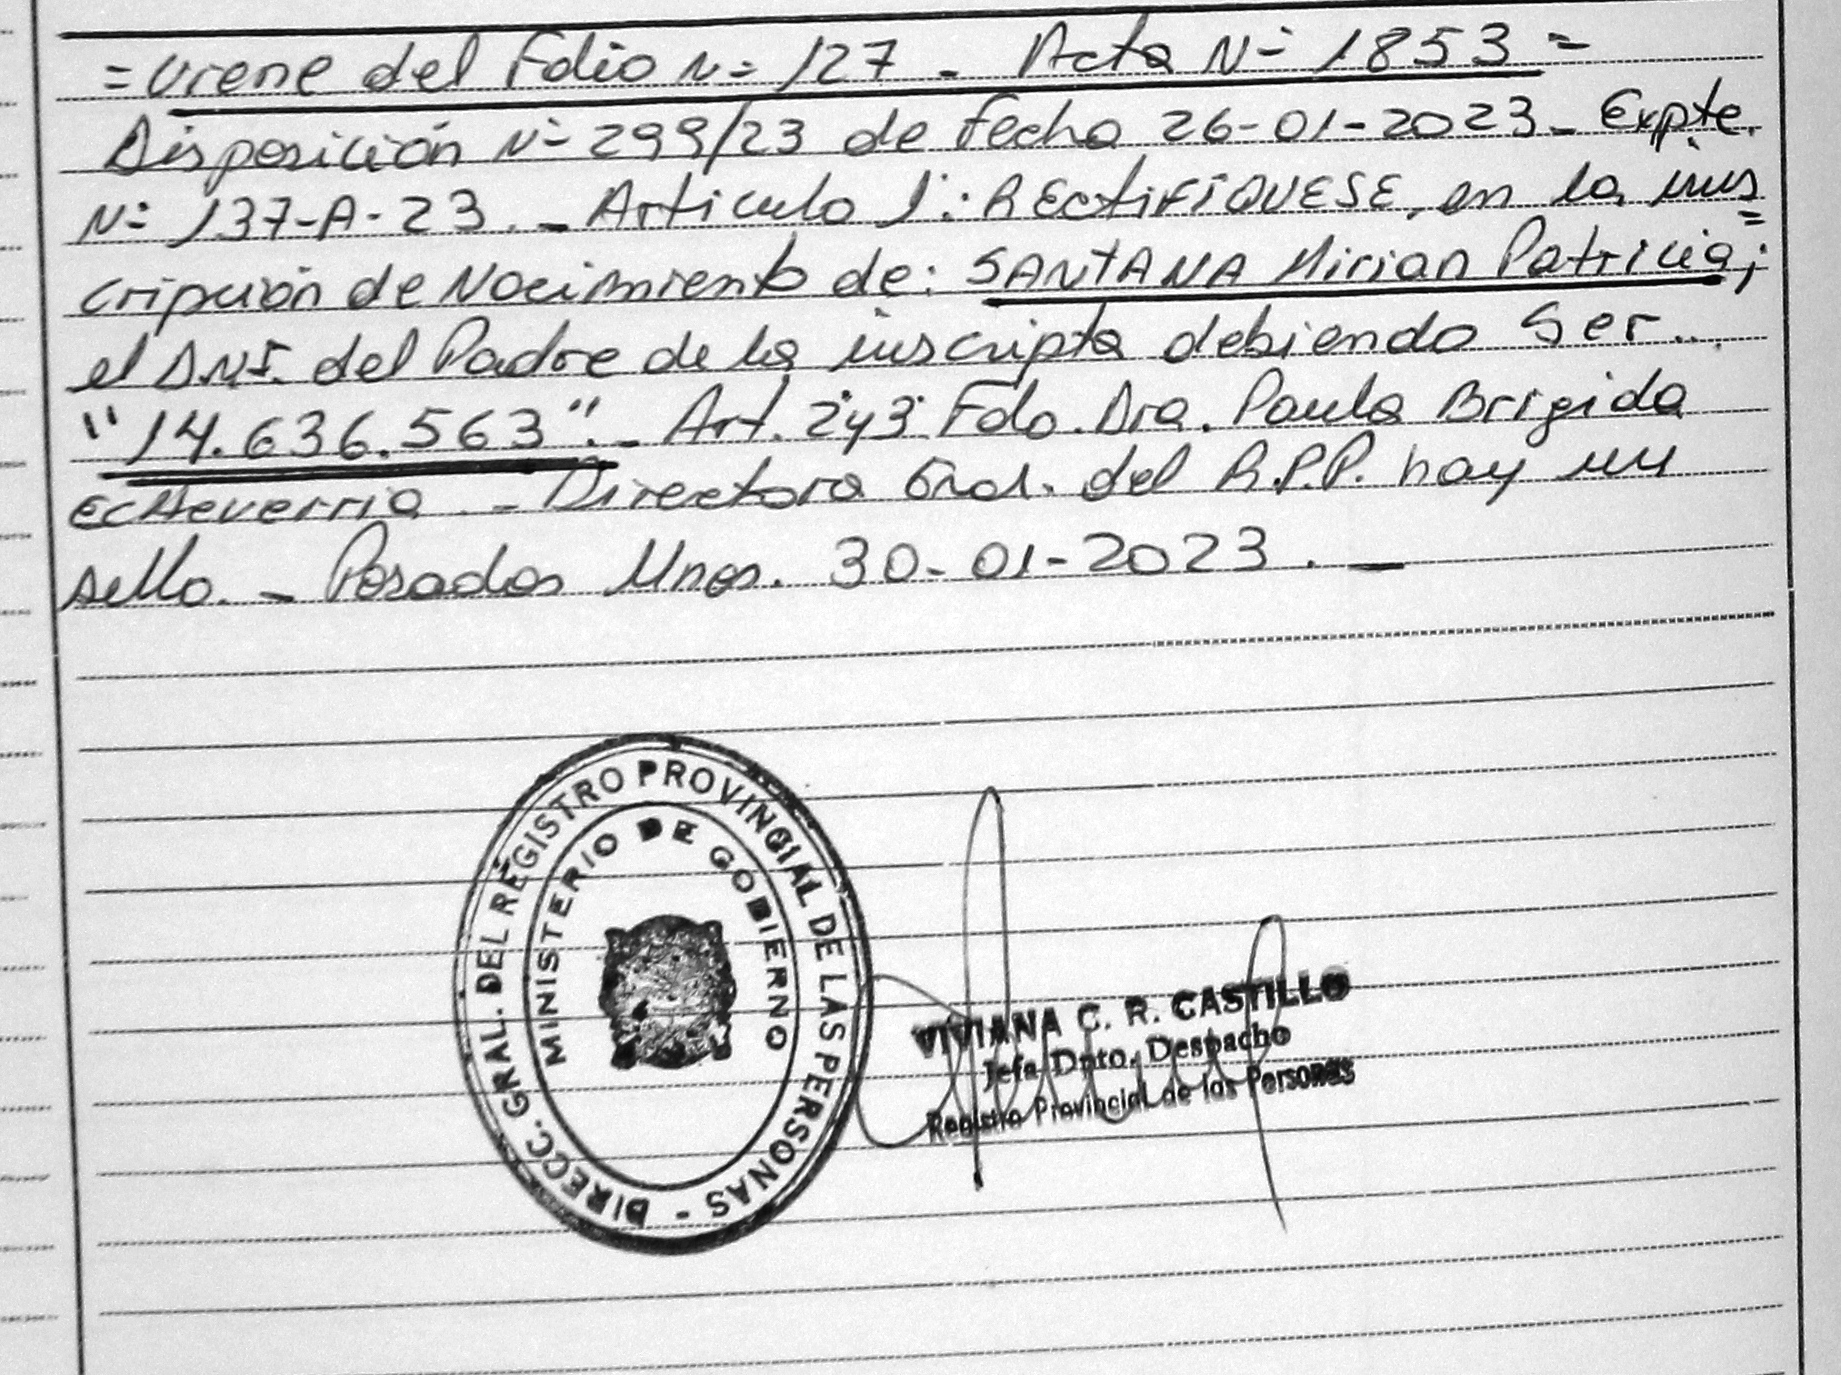 =Viene del Folio N= 127 - Acta N= 1853 =
Disposición N= 299/23 de Fecha 26-01-2023- Expte.
N= 137-A-23.- Articulo 1°: RECtiFÍQUESE, en la ins=
cripción de Nacimiento de: SANTANA Mirian Patricia;
el D.N.I. del Padre de la inscripta debiendo Ser...
"14.636.563".- Art. 2°y3° Fdo. Dra. Paula Brigida
EcHeverria.- Directora Gral. del R.P.P. hay un
sello.- Posadas Mnes. 30-01-2023.-
DIRECC. GRAL. DEL REGISTRO PROVINCIAL DE LAS PERSONAS -
MINISTERIO DE GOBIERNO
VIVIANA C. R. CASTILLO
Jefa Dpto. Despacho
Registro Provincial de las Personas